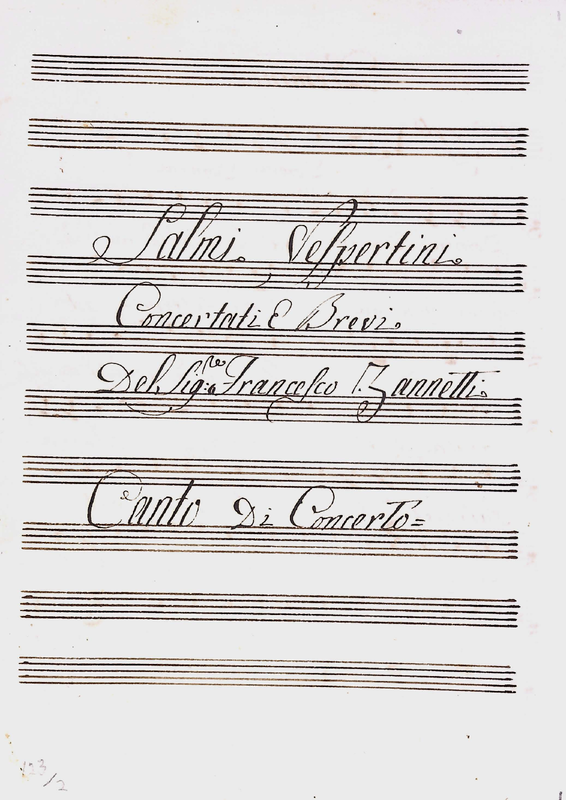 Salmi Vespertini
Concertati E Brevi.
Del Sig:re Francesco Zannetti.
Canto Di Concerto=
123/2